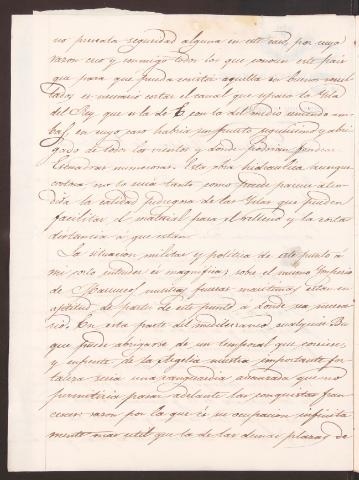 no presenta seguridad alguna en este caso, por cuya
razon creo y conmigo todos los que conocen este pais
que para que pueda existir aquella en buenos resul
tados es necesario cortar el canal que separa la Ysla
del Rey, que es la de E con la del medio uniendo am
bas, en cuyo caso habria un puerto segurisimo y abri
gado de todos los vientos y donde podrian fondear
Escuadras numerosas. Esta obra hidraulica aunque
costosa no lo seria tanto como puede parecer aten
dida la calidad pedregosa de las Yslas que pueden
facilitar el material para el relleno y la corta
distancia á que estan.
La situacion militar y politica de este punto á
mi corto entender es magnifica; sobre el mismo Ymperio
de Marruecos nuestras fuerzas maritimas estan en
aptitud de partir de este punto á donde sea necesa
rio. En esta parte del mediterraneo cualquier Bu
que puede abrigarse de un temporal que corriese,
y enfrente de la Argelia nuestra importante for
taleza seria una vanguardia avanzada que no
permitiria pasar adelante las conquistas fran
cesas: razon por la que es su ocupacion infinita
mente mas util que la de las demas plazas de